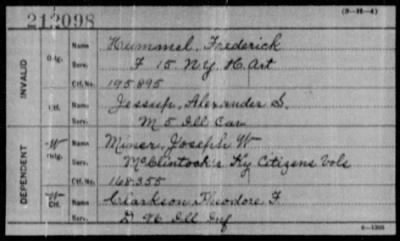 212098
(3-H-4)
INVALID
Orig.
Name Hummel, Frederick
Serv. F 15 N.Y. H. Art
Ctf.No. 195895
Ctf.
Name Jessup, Alexander S.
Serv. M 5 Ill Cav
DEPENDENT
W Orig.
Name Miner, Joseph W
Serv. McClintock's Ky Citizens Vols
Ctf.No. 168355
W Ctf.
Name Clarkson Theodore F
Serv. D 96 Ill Inf